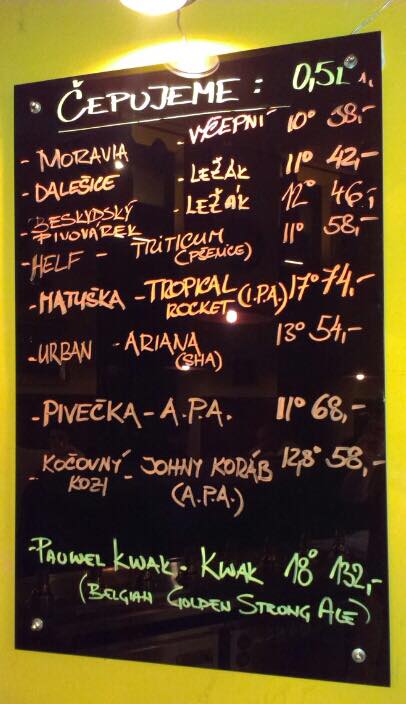 ČEPUJEME: 0,5L
- MORAVIA VÝČEPNÍ 10° 38,-
- DALEŠICE - LEŽÁK 11° 42,-
- BESKYDSKÝ PIVOVÁREK - LEŽÁK 12° 46,-
- HELF - TRITICUM (PŠENICE) 11° 58,-
- MATUŠKA - TROPICAL ROCKET (I.P.A.) 17° 74,-
- URBAN - ARIANA (SHA) 13° 54,-
- PIVEČKA - A.P.A. 11° 68,-
- KOČOVNÝ KOZI - JOHNY KORÁB (A.P.A.) 12,8° 58,-
- PAUWEL KWAK - KWAK 18° 132,-
(BELGIAN GOLDEN STRONG ALE)